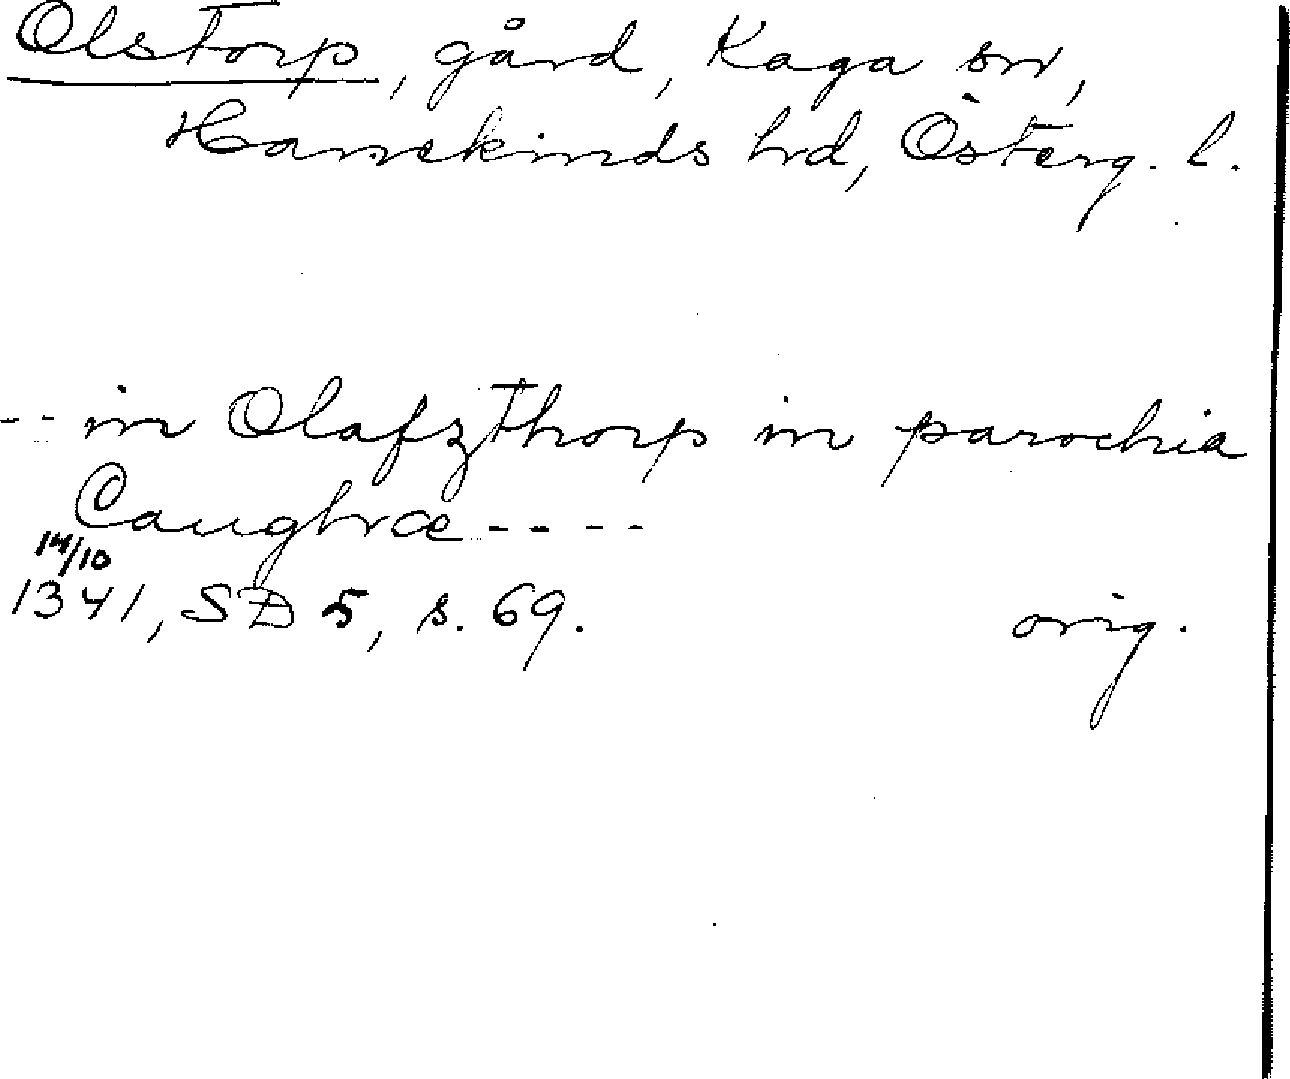 Olstorp, gård, Kaga sn,
Hanekinds hrd, Österg. l.
-- in Olafzthorp in parochia
Caughræ ----
14/10
1341, SD 5, s. 69. orig.